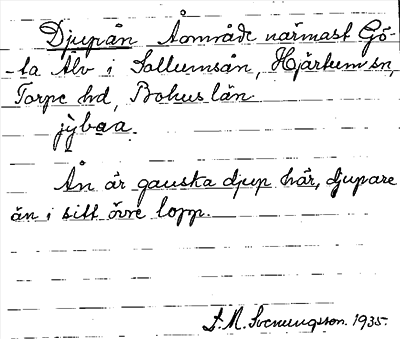 Djupån Åområde närmast Gö-
-ta Älv i Sollumsån, Hjärtum sn,
Torpe hd, Bohuslän
jỳbaa.
Ån är ganska djup här, djupare
än i sitt övre lopp.
S. M. Svenungsson. 1935.